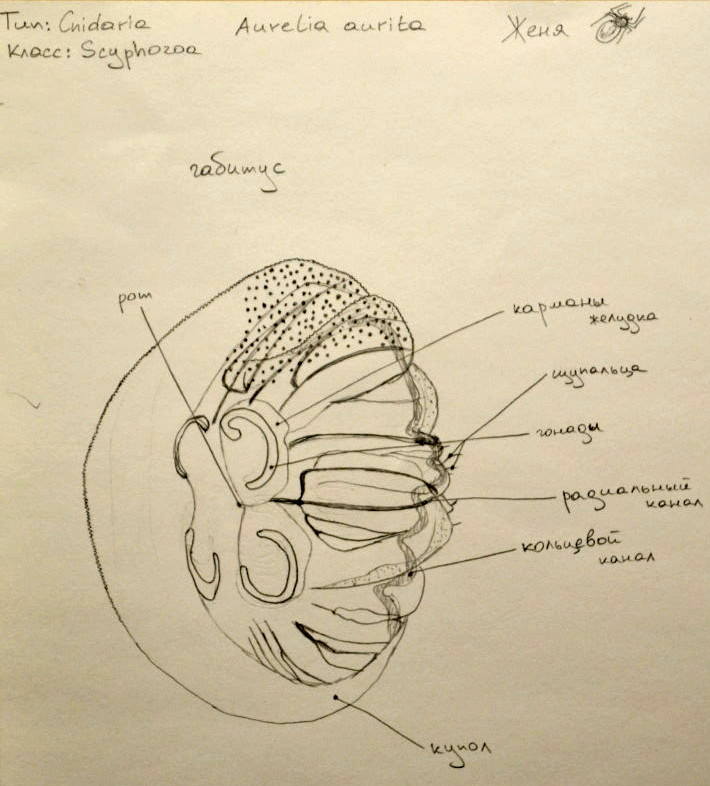 Тип: Cnidaria
Aurelia aurita
Женя
Класс: Scyphozoa
габитус
рот
карманы
желудка
щупальца
гонады
радиальный
канал
кольцевой
канал
купол